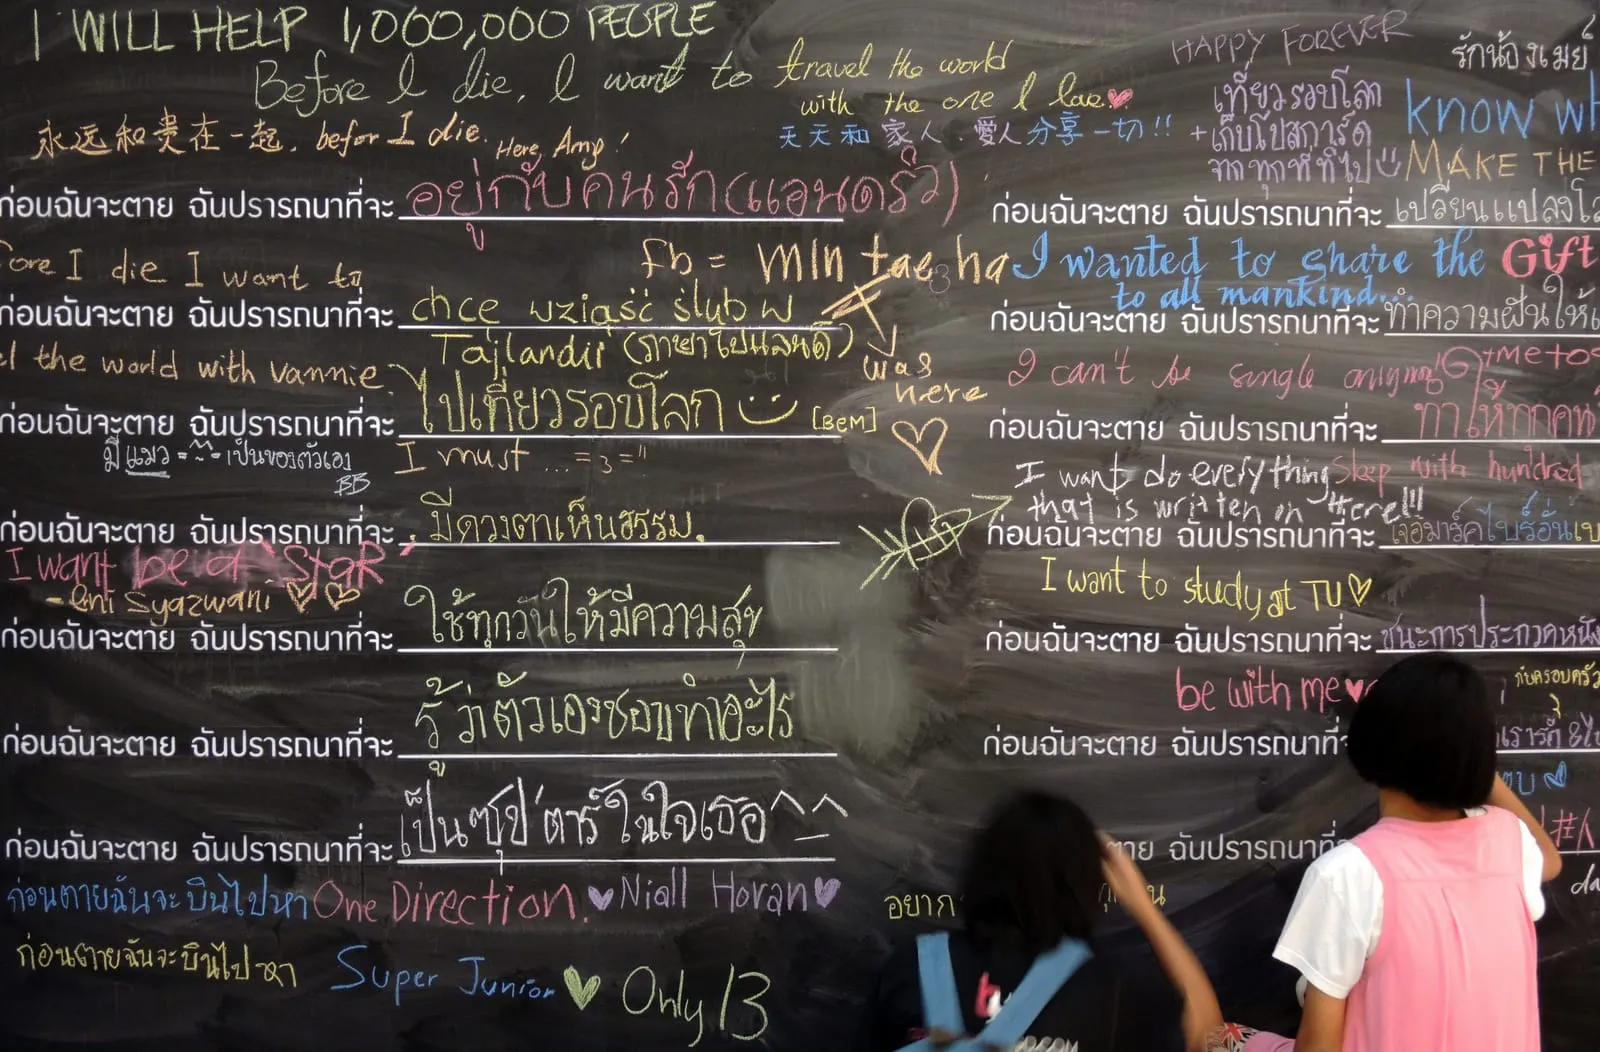 I WILL HELP 1,000,000 PEOPLE
Before I die, I want to travel the world
with the one I love
永远和贵在一起, befor I die. Here, Amp!
天天和家人.愛人分享一切!!
ก่อนฉันจะตาย ฉันปรารถนาที่จะ อยู่กับคนรัก(แอนดริว)
fb = min tae ha
ore I die I want to
ก่อนฉันจะตาย ฉันปรารถนาที่จะ chce wziąść ślub w
Tajlandii (ภาษาโปแลนด์)
was
here
l the world with vannie
ก่อนฉันจะตาย ฉันปรารถนาที่จะ ไปเที่ยวรอบโลก [BEM]
มีแมว = เป็นของตัวเอง
BB
I must ... = 3 = "
ก่อนฉันจะตาย ฉันปรารถนาที่จะ มีดวงตาเห็นธรรม.
I want be a StaR
- Eni Syazwani
ก่อนฉันจะตาย ฉันปรารถนาที่จะ ใช้ทุกวันให้มีความสุข
ก่อนฉันจะตาย ฉันปรารถนาที่จะ รู้ว่าตัวเองชอบทำอะไร
ก่อนฉันจะตาย ฉันปรารถนาที่จะ เป็นซุป'ตาร์ในใจเธอ ^_^
ก่อนตายฉันจะบินไปหา One Direction. Niall Horan
ก่อนตายฉันจะบินไปหา Super Junior Only 13
HAPPY FOREVER
รักน้องเมย์
เที่ยวรอบโลก
+เก็บโปสการ์ด
จากทุกที่ที่ไป
KNOW WH
MAKE THE
ก่อนฉันจะตาย ฉันปรารถนาที่จะ เปลี่ยนแปลงโล
I wanted to share the Gift
to all mankind...
ก่อนฉันจะตาย ฉันปรารถนาที่จะ ทำความฝันให้เ
I can't be single anymore
ก่อนฉันจะตาย ฉันปรารถนาที่จะ ทำให้ทุกคน
I want do everything
that is written in there!!!
Sleep with hundred
ก่อนฉันจะตาย ฉันปรารถนาที่จะ เจอมาร์คไบร์อั่นเบ
I want to study at TU
ก่อนฉันจะตาย ฉันปรารถนาที่จะ ชนะการประกวดหนัง
be with me
กับครอบครัว
ก่อนฉันจะตาย ฉันปรารถนาที่จ
เรารัก &ไป
ตาย ฉันปรารถนาที่จ
อยาก